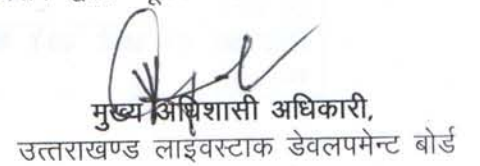 मुख्य अधिशासी अधिकारी,
उत्तराखण्ड लाइवस्टाक डेवलपमेन्ट बोर्ड